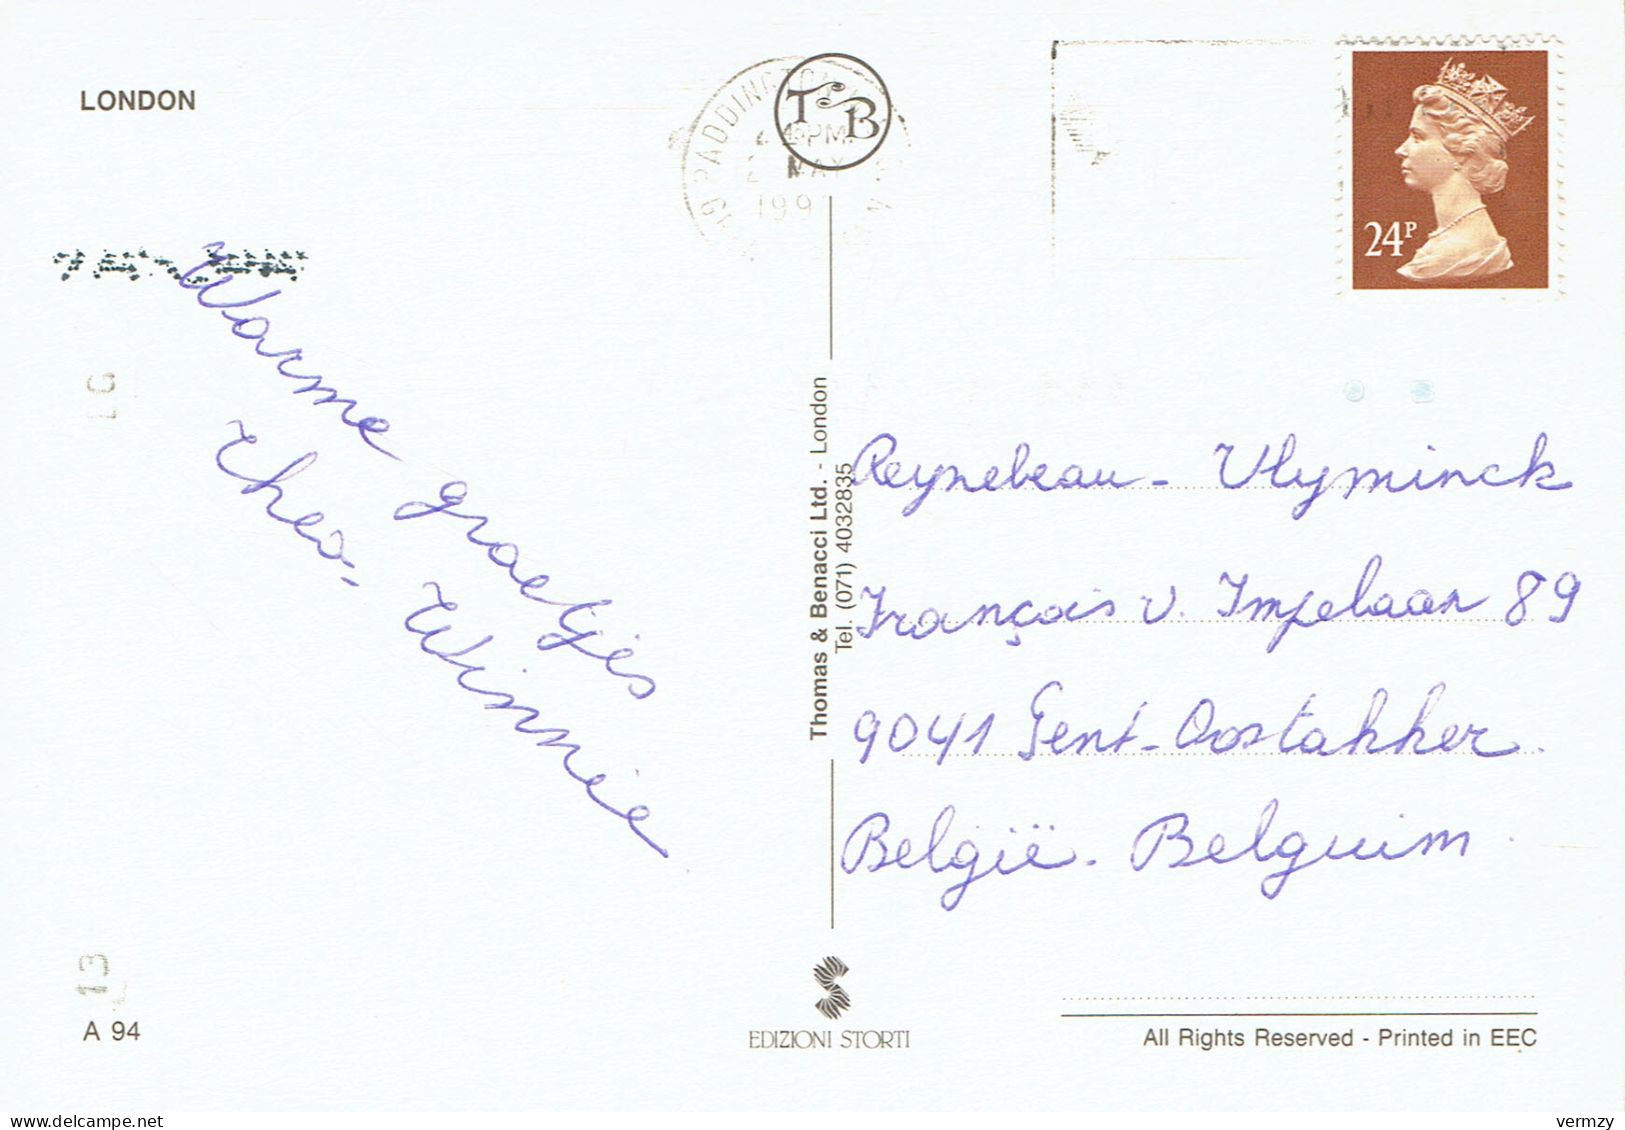 LONDON
PADDINGTON
T&B
PM
MAY
199
24P
Warme groetjes
Theo, Winnie
16
13
A 94
Thomas & Benacci Ltd. - London
Tel. (071) 4032835
Reynebeau - Vlyminck
François v. Impelaan 89
9041 Gent-Oostakker.
België - Belguim.
EDIZIONI STORTI
All Rights Reserved - Printed in EEC
delcampe.net
vermzy